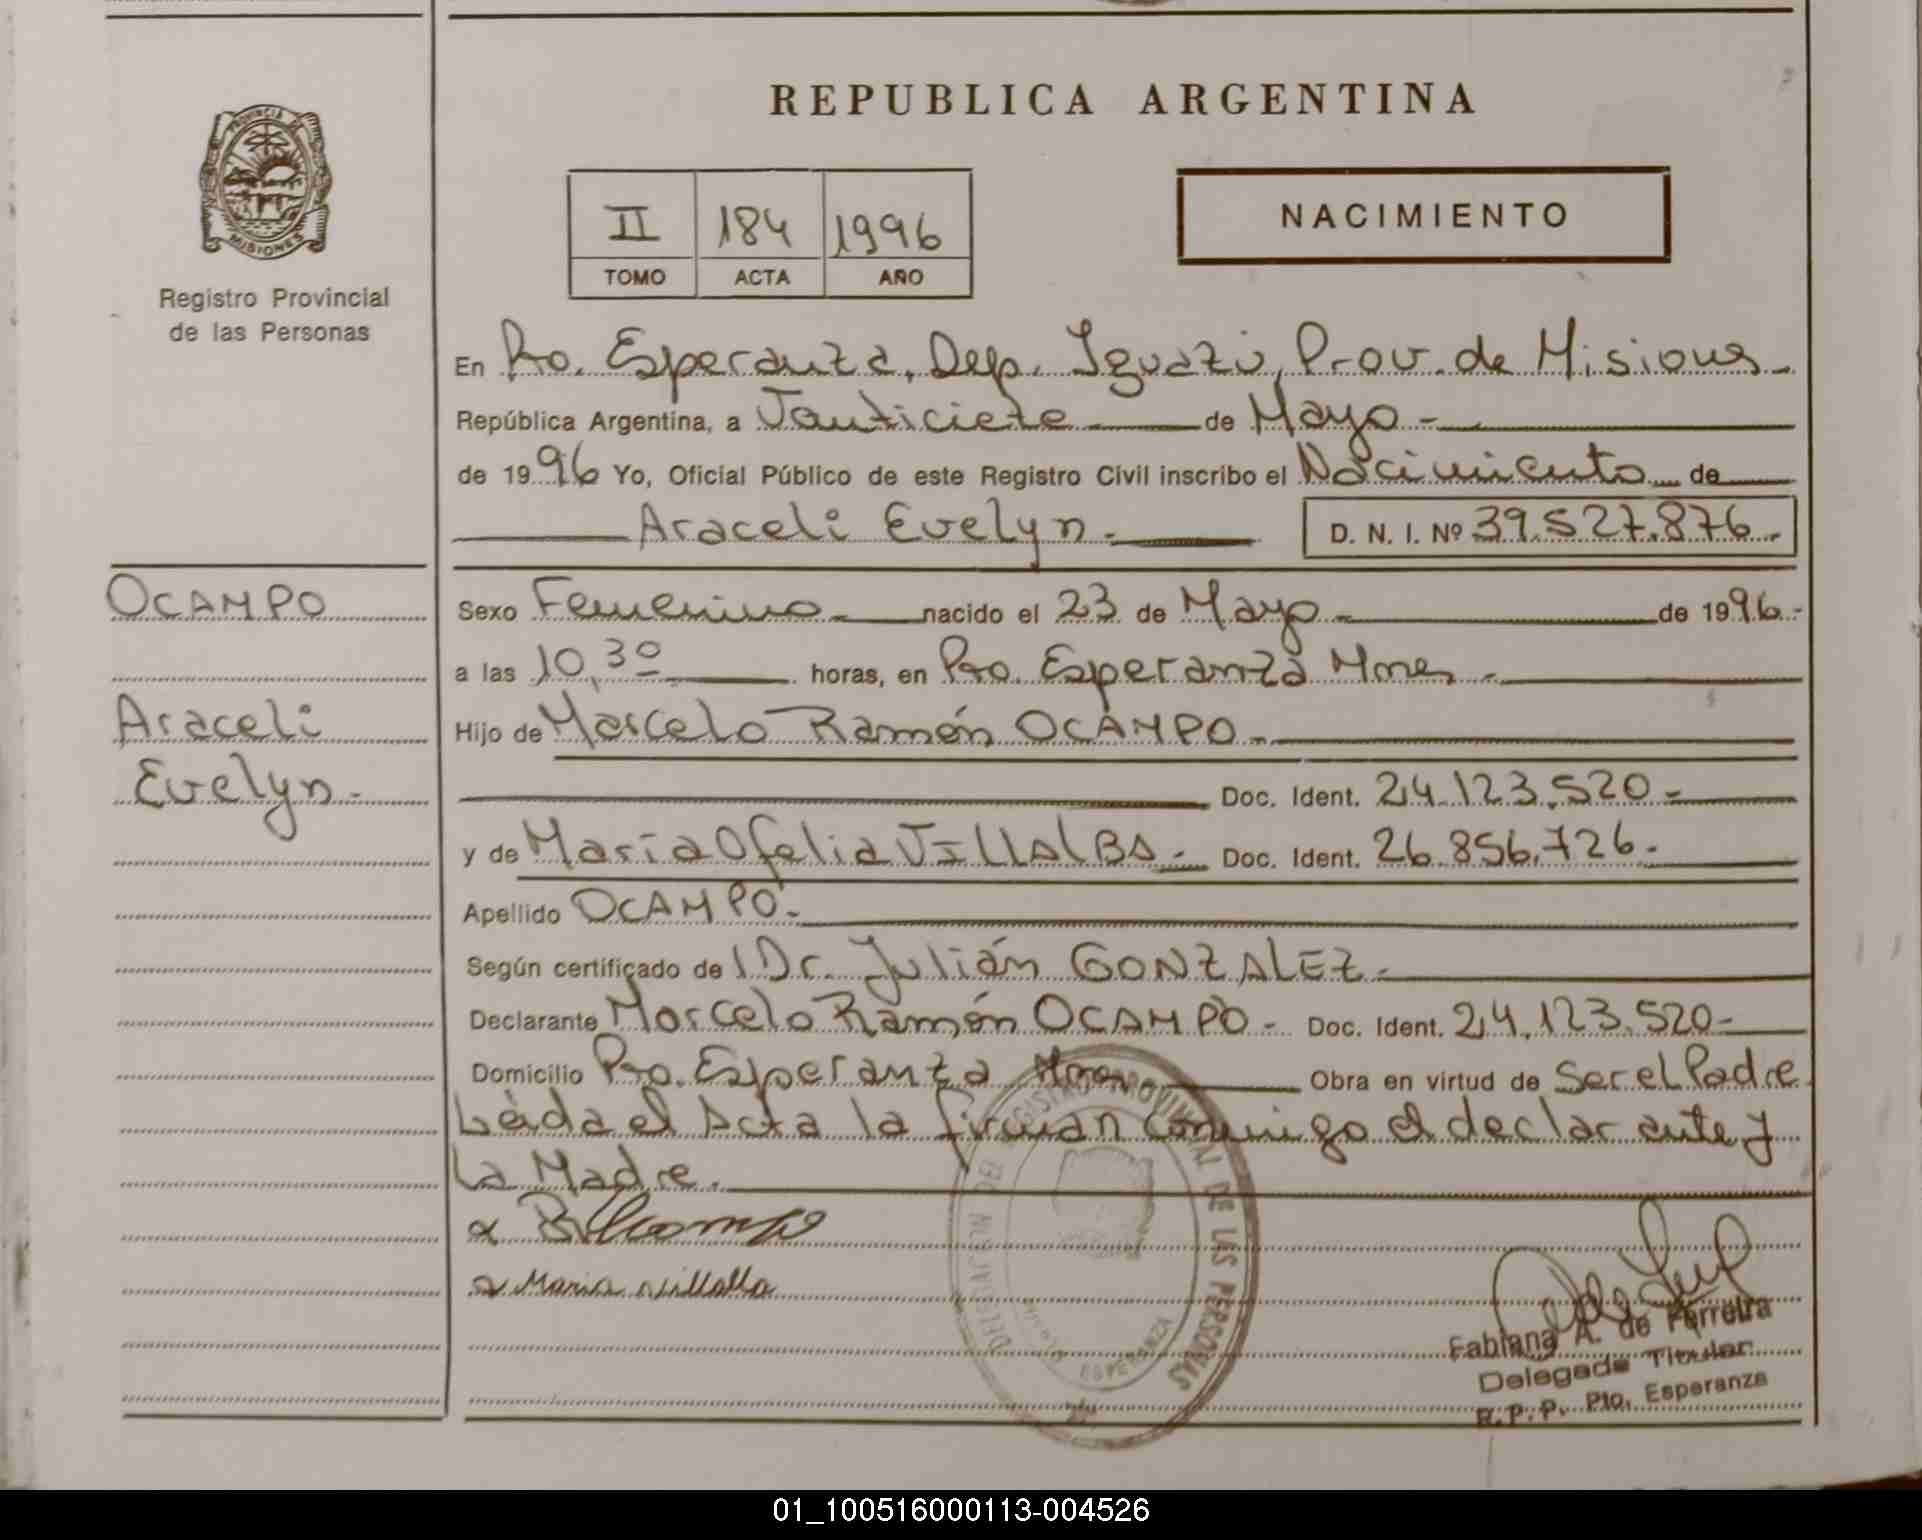 PROVINCIA DE
MISIONES
Registro Provincial
de las Personas
OCAMPO
Araceli
Evelyn.-
REPUBLICA ARGENTINA
II 184 1996
TOMO ACTA AÑO
NACIMIENTO
En Pto. Esperanza, Dep. Iguazú, Prov. de Misiones.-
República Argentina, a Veintisiete de Mayo.-
de 1996 Yo, Oficial Público de este Registro Civil inscribo el Nacimiento de
Araceli Evelyn.- D. N. I. Nº 39.527.876.-
Sexo Femenino.- nacido el 23 de Mayo.- de 1996.-
a las 10,30 horas, en Pto. Esperanza Mnes.-
Hijo de Marcelo Ramón OCAMPO.-
Doc. Ident. 24.123.520.-
y de María Ofelia VILLALBA.- Doc. Ident. 26.856.726.-
Apellido OCAMPO.-
Según certificado de l Dr. Julián GONZALEZ.-
Declarante Marcelo Ramón OCAMPO.- Doc. Ident. 24.123.520.-
Domicilio Pto. Esperanza Mnes.- Obra en virtud de Ser el Padre
Leída el Acta la firman conmigo el declarante y
la Madre.
Maria Villalba
REGISTRO PROVINCIAL DE LAS PERSONAS
ESPERANZA
Fabiana A. de Ferreira
Delegada Titular
R.P.P. Pto. Esperanza
01_100516000113-004526